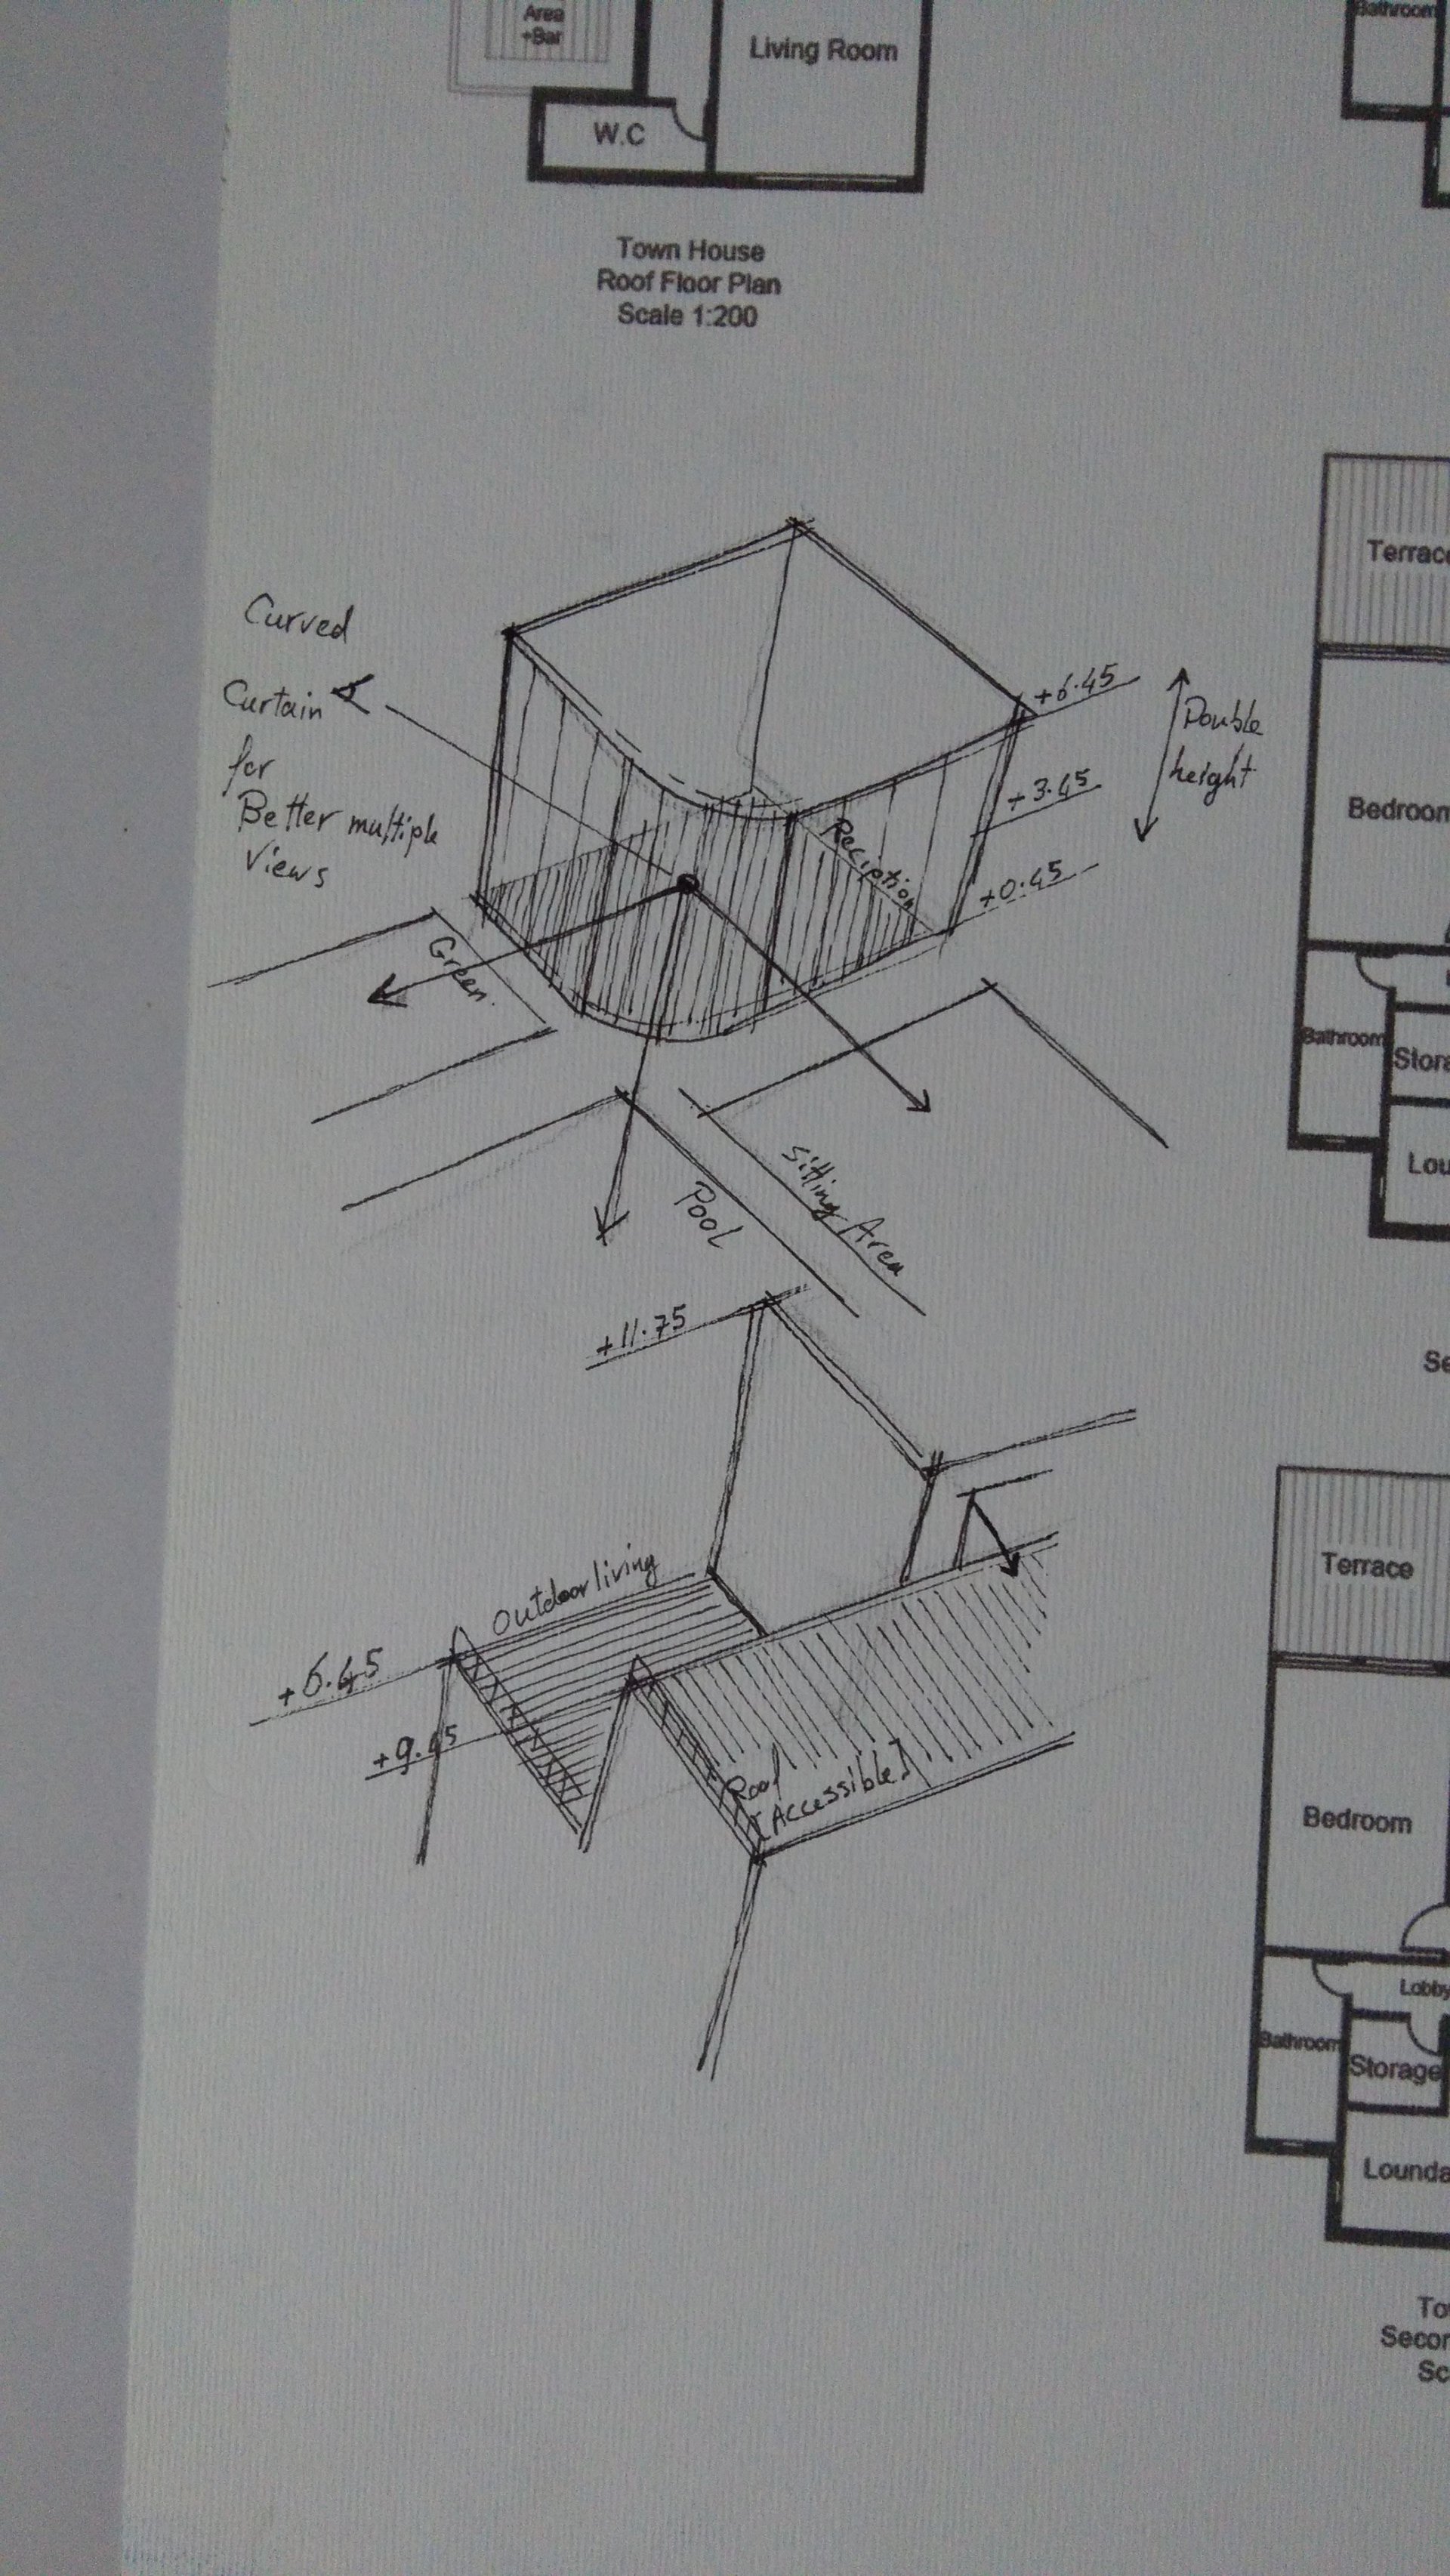 Area
+Bar
Living Room
W.C
Bathroom
Town House
Roof Floor Plan
Scale 1:200
Terrac
Curved
Curtain
for
Better multiple
Views
+6.45
Double
height
+3.45
+0.45
Reciption
Green.
Bedroom
Bathroom
Stora
Lou
Sitting Area
Pool
Se
+11.75
Outdoor living
+6.45
+9.45
Roof
[Accessible]
Terrace
Bedroom
Lobby
Bathroom
Storage
Lounda
To
Secon
Sc